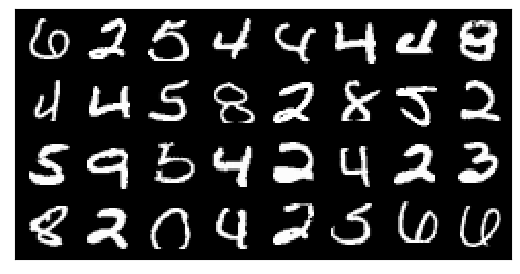 6 2 5 4 4 4 4 8
4 4 5 8 2 8 5 2
5 9 5 4 2 4 2 3
8 2 0 4 2 5 6 6